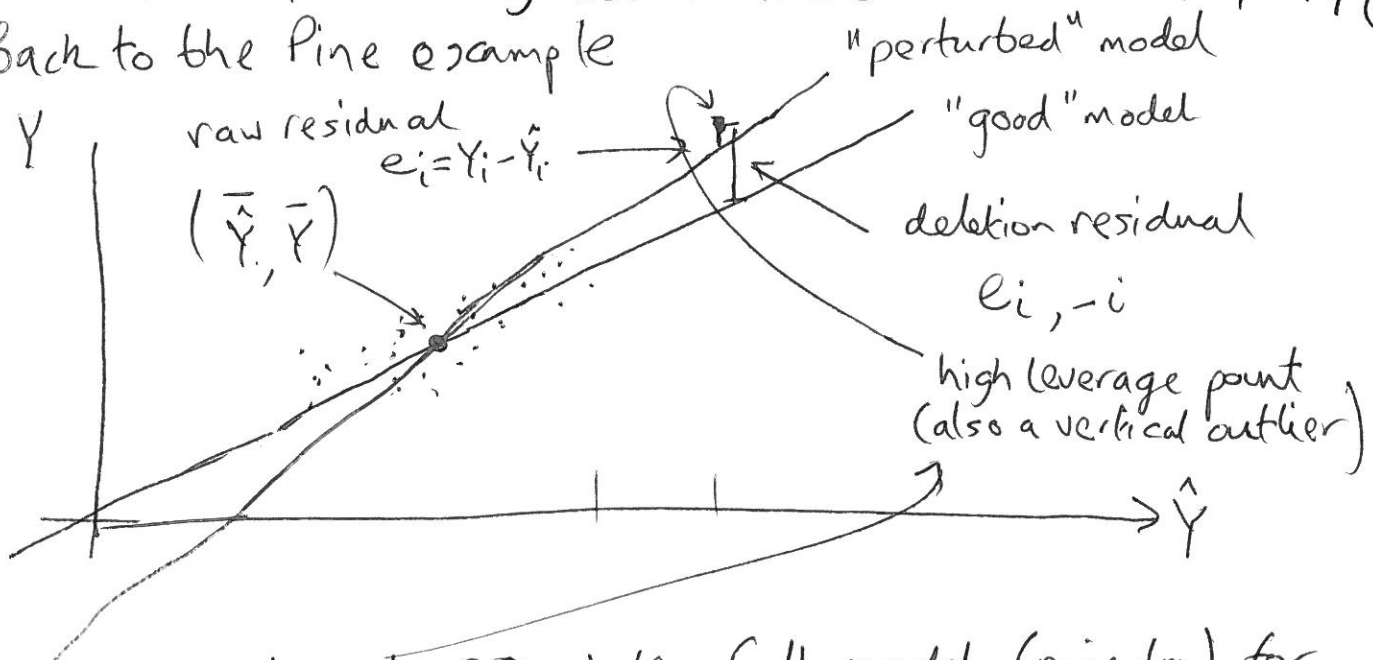 Back to the Pine example
"perturbed" model
"good" model
Y
raw residual
eᵢ=Yᵢ-Ŷᵢ
(Ŷ̄, Ȳ)
deletion residual
eᵢ,-ᵢ
high leverage point
(also a vertical outlier)
Ŷ
full model
for